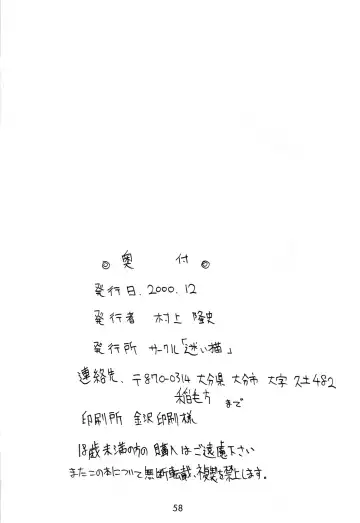 ◎ 奥 付 ◎
発行日. 2000.12
発行者 村上 隆史
発行所 サークル「迷い猫」
連絡先、〒870-0314 大分県 大分市 大字 久土482
稲毛方 まで
印刷所 金沢印刷様
18歳未満の方の購入はご遠慮下さい
またこの本について無断転載、複製を禁止します。
58